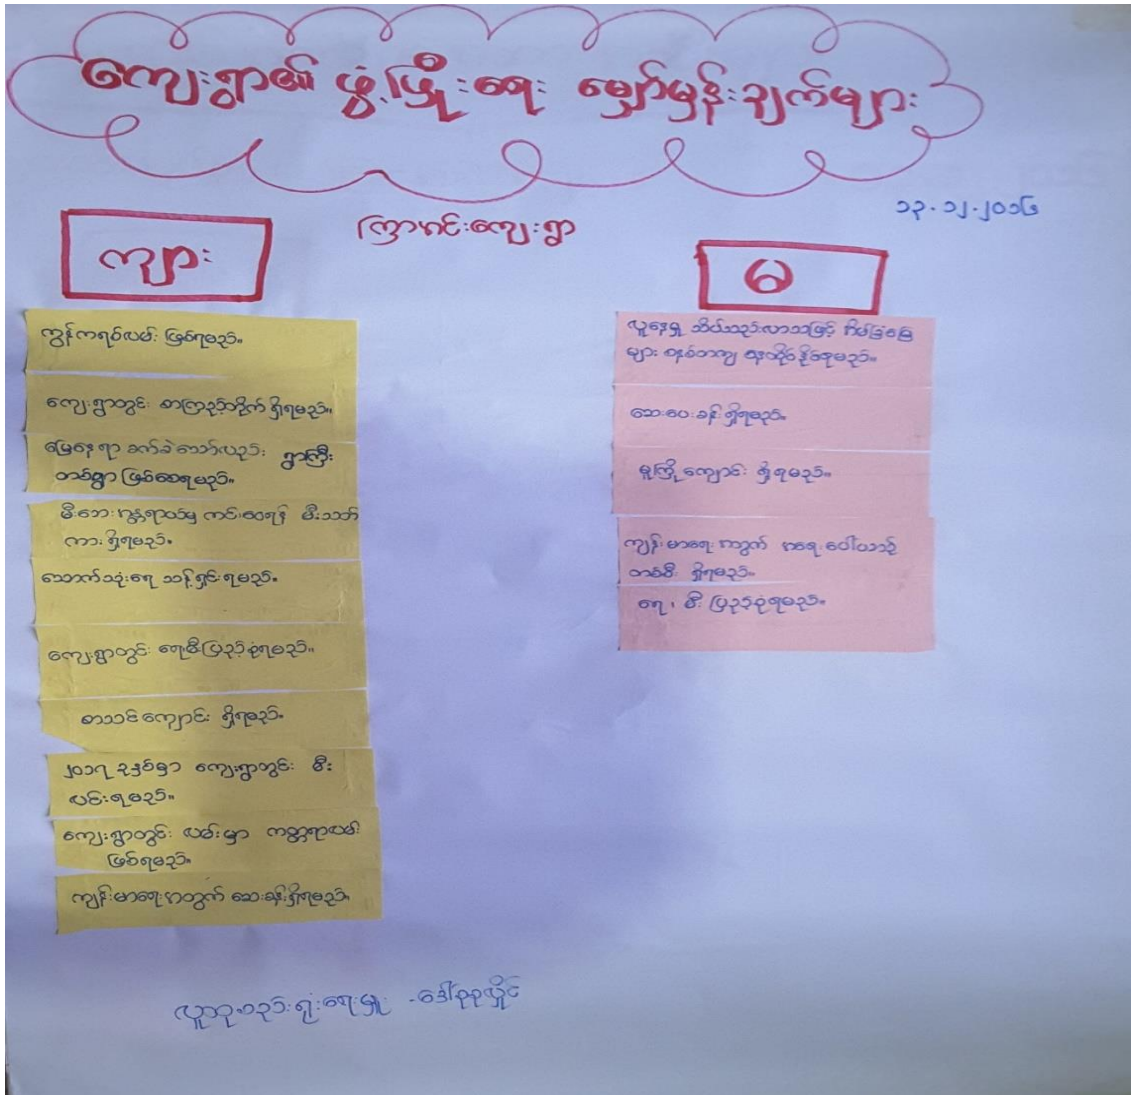 ကျေးရွာ၏ ဖွံ့ဖြိုးရေး မျှော်မှန်းချက်များ
၁၃.၁၂.၂၀၁၆
ကြာကင်းကျေးရွာ
ကျား
ကွန်ကရစ်လမ်း ဖြစ်ရမည်။
ကျေးရွာတွင်း စာကြည့်တိုက် ရှိရမည်။
မြေနေရာ ခက်ခဲသော်လည်း ရွာကြီး
တစ်ရွာ ဖြစ်စေရမည်။
မီးဘေးအန္တရာယ်မှ ကင်းဝေးရန် မီးသတ်
ကား ရှိရမည်။
သောက်သုံးရေ သန့်ရှင်းရမည်။
ကျေးရွာတွင်း ရေမီးပြည့်စုံရမည်။
စာသင်ကျောင်း ရှိရမည်။
၂၀၁၇ ခုနှစ်မှာ ကျေးရွာတွင်း မီး
လင်းရမည်။
ကျေးရွာတွင်း လမ်းမှာ ကတ္တရာလမ်း
ဖြစ်ရမည်။
ကျန်းမာရေးအတွက် ဆေးခန်းရှိရမည်။
မ
လူနေမှု သိပ်သည်းလာသဖြင့် အိမ်ခြံမြေ
များ စနစ်တကျ နေထိုင်နိုင်ရမည်။
ဆေးပေးခန်း ရှိရမည်။
မူကြိုကျောင်း ရှိရမည်။
ကျန်းမာရေးအတွက် အရေးပေါ်ယာဉ်
တစ်စီး ရှိရမည်။
ရေ၊ မီး ပြည့်စုံရမည်။
လူထုစည်းရုံးရေးမှူး - ဒေါ်